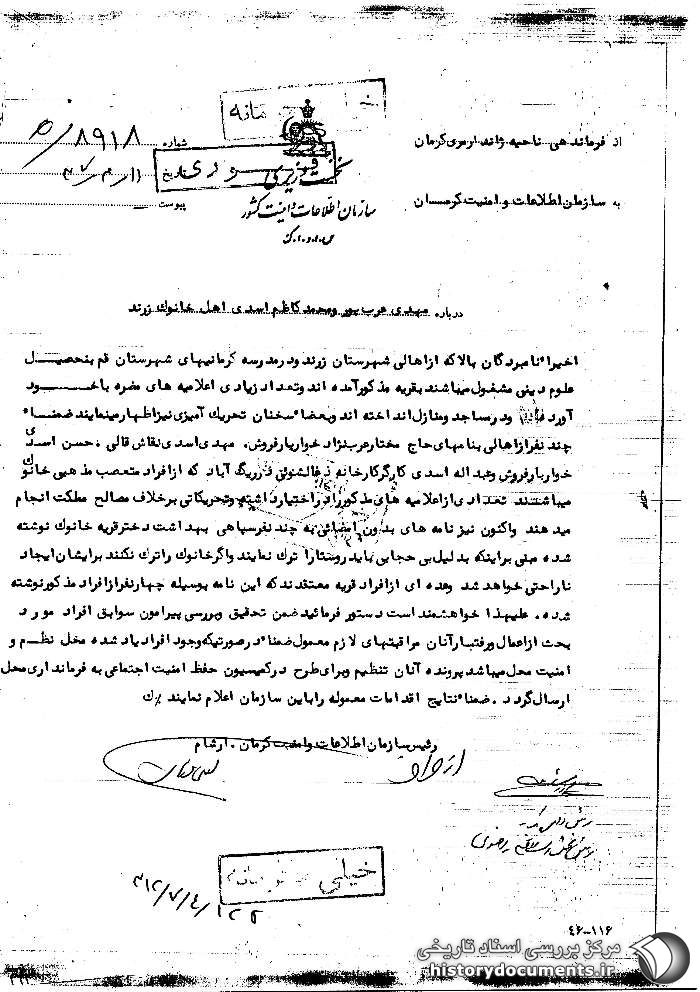 خیلی محرمانه
از فرماندهی ناحیه ژاندارمری کرمان
شماره ۸۹۱۸/ه
نخست وزیری
تاریخ
به سازمان اطلاعات و امنیت کرمان
پیوست
سازمان اطلاعات و امنیت کشور
س.ا.و.ا.ک
درباره مهدی عرب پور و محمد کاظم اسدی اهل خانوک زرند
اخیرا" نامبردگان بالا که از اهالی شهرستان زرند و در مدرسه کرمانیهای شهرستان قم بتحصیل
علوم دینی مشغول میباشند بقریه مذکور آمده اند و تعداد زیادی اعلامیه های مضره با خود
آورده و در مساجد و منازل انداخته اند و بعضا" سخنان تحریک آمیزی نیز اظهار مینمایند ضمنا"
چند نفر از اهالی بنامهای حاج مختار عرب نژاد خواربار فروش . مهدی اسدی نقاش قالی . حسن اسدی
خواربار فروش و عبداله اسدی کارگر کارخانه ذغالشوئی در ریگ آباد که از افراد متعصب مذهبی خانوک
میباشند تعدادی از اعلامیه های مذکور را در اختیار داشته و تحریکاتی برخلاف مصالح مملکت انجام
میدهند واکنون نیز نامه های بدون امضائی به چند نفر سپاهی بهداشت دختر قریه خانوک نوشته
شده مبنی براینکه بدلیل بی حجابی باید روستا را ترک نمایند و اگر خانوک را ترک نکنند برایشان ایجاد
ناراحتی خواهد شد وعده ای از افراد قریه معتقدند که این نامه بوسیله چهار نفر از افراد مذکور نوشته
شده . علیهذا خواهشمند است دستور فرمائید ضمن تحقیق و بررسی پیرامون سوابق افراد مورد
بحث از اعمال و رفتار آنان مراقبتهای لازم معمول ضمنا" در صورتیکه وجود افراد یاد شده مخل نظم و
امنیت محل میباشد پرونده آنان تنظیم و برای طرح در کمیسیون حفظ امنیت اجتماعی به فرمانداری محل
ارسال گردد . ضمنا" نتایج اقدامات معموله را باین سازمان اعلام نمایند
رئیس سازمان اطلاعات و امنیت کرمان . ارشام
خیلی محرمانه
۳۱۲/۷/۴/۱۲۲
۴۶-۱۱۶
مرکز بررسی اسناد تاریخی
historydocuments.ir